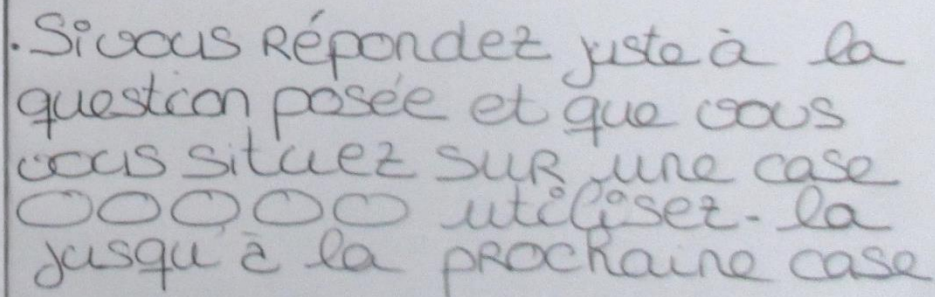 . Si vous Répondez juste à la
question posée et que vous
vous situez SUR une case
OOOOO utilisez-la
jusqu'à la prochaine case